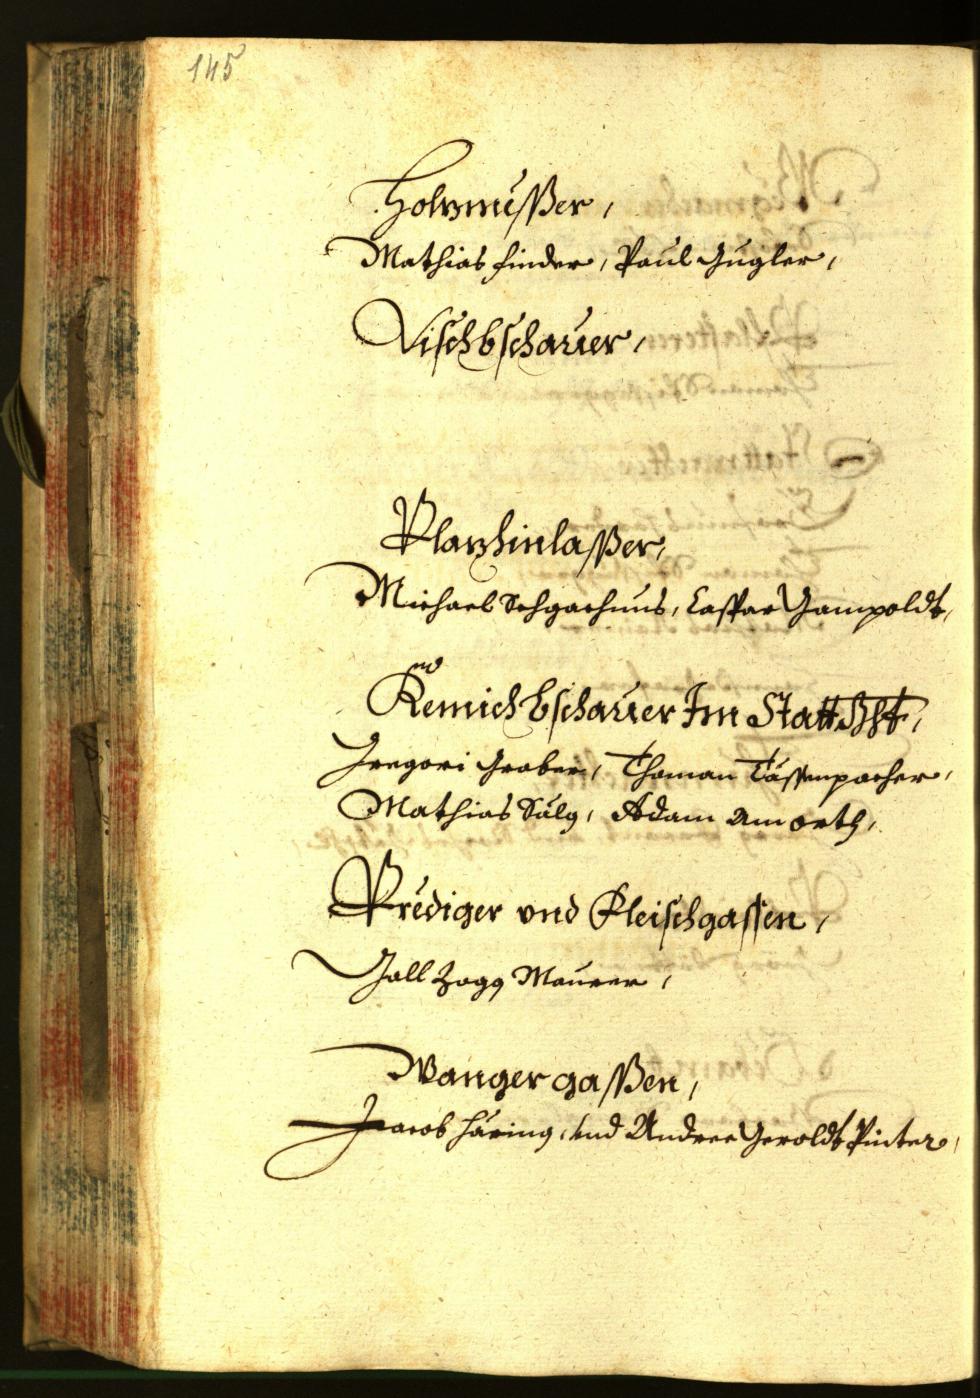 145
Holzmeßer,
Mathias Finder, Paul Gugler,
Vischbschauer,
Plazhinlaßer,
Michael Schgachnus, Caspar Gampoldt,
Kemich bschauer Im Statt
Gregori Graber, Thoman Tässenpacher,
Mathias Sälg, Adam Amorth,
Prediger vnd Fleischgassen,
Gall Zogg Maurer,
Wanger gaßen,
Jacob Häring, vnd Andree Geroldt Pinter,